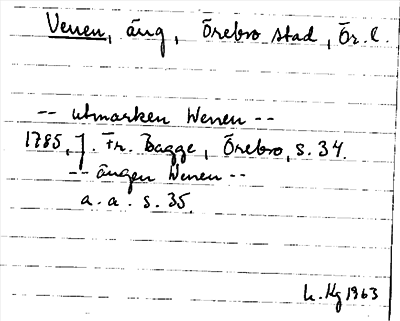 Venen, äng, Örebro stad, Ör. l.
-- utmarken Wenen --
1785, J. Fr. Bagge, Örebro, s. 34.
-- ängen Wenen --
a. a. s. 35.
1963